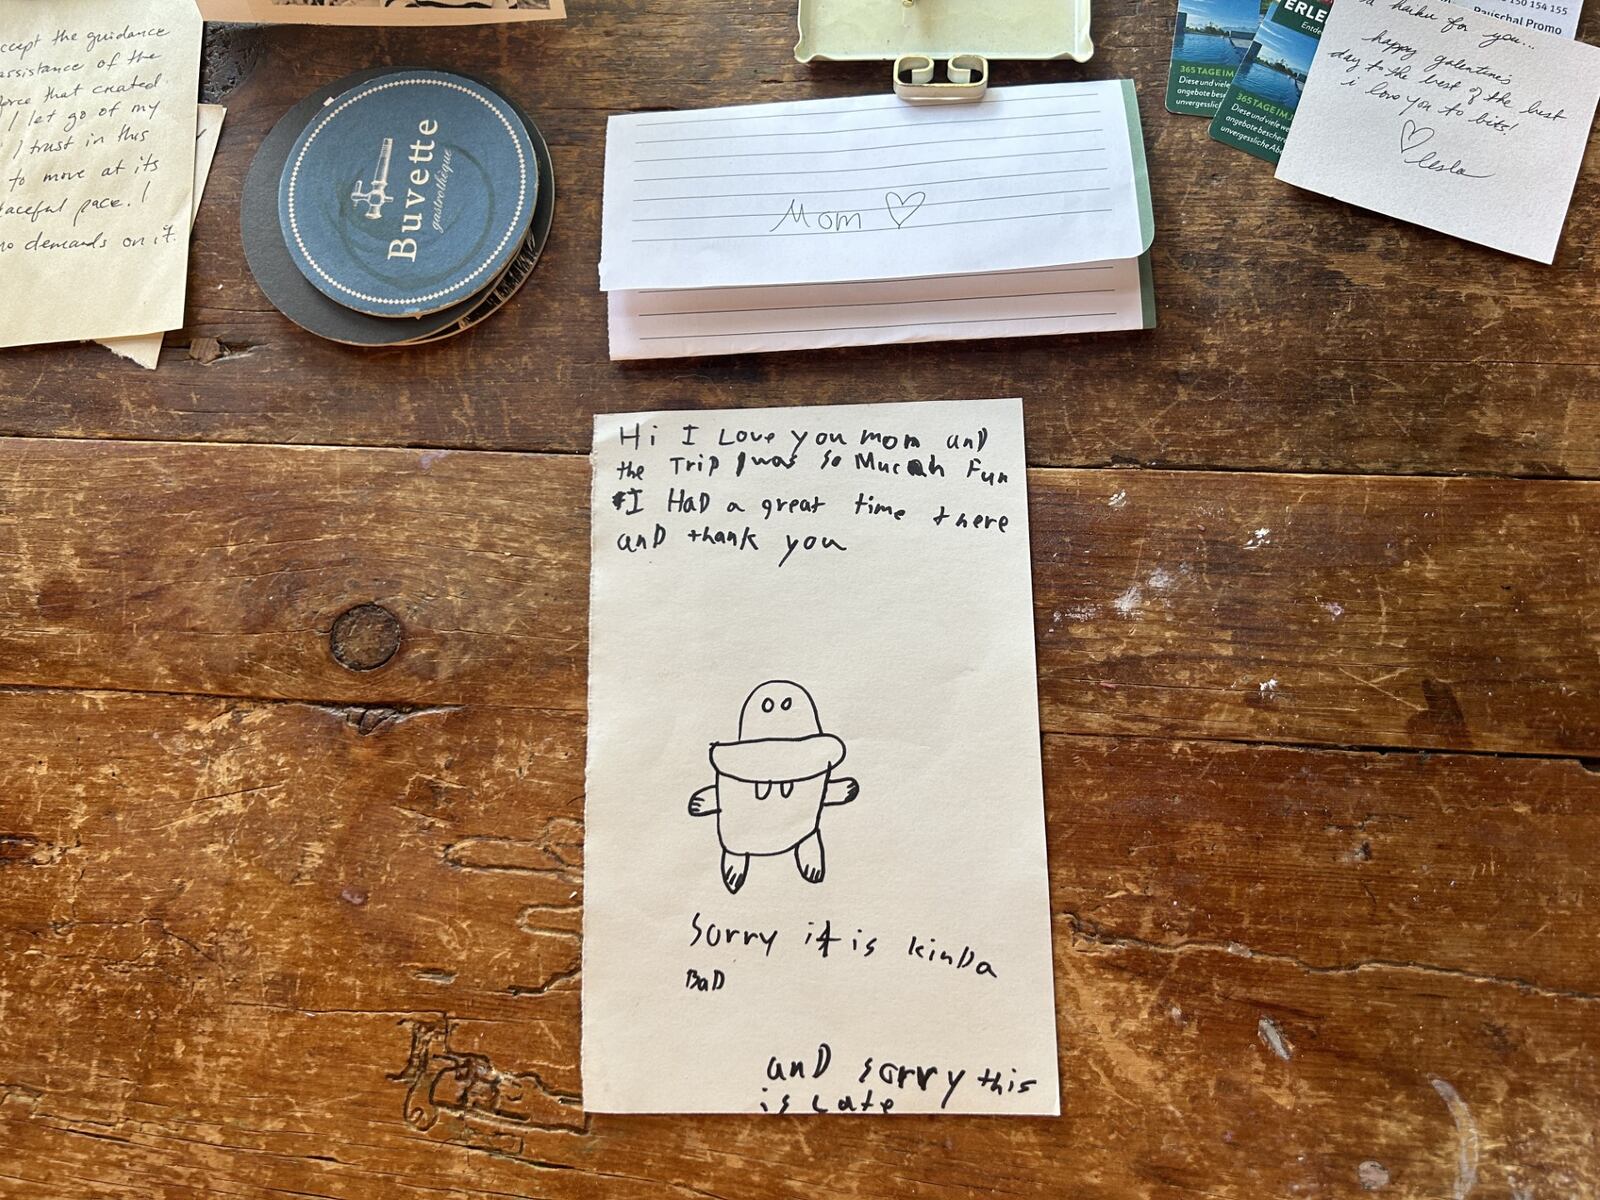 ccept the guidance
assistance of the
force that created
I let go of my
I trust in this
to move at its
peaceful pace. I
no demands on it.
Buvette
gastrothèque
Mom ♡
365 TAGE IM
Diese und viele
angebote bes
unvergesslic
ERLE
Entde
365 TAGE IM J
Diese und viele we
angebote besche
unvergessliche Abe
150 154 155
Pauschal Promo
a haiku for you...
happy galentine's
day to the best of the best
i love you to bits!
♡
Hi I Love you mom and
the Trip was so Much Fun
I HaD a great time there
anD thank you
Sorry if is kinDa
BaD
anD sorry this
is Late